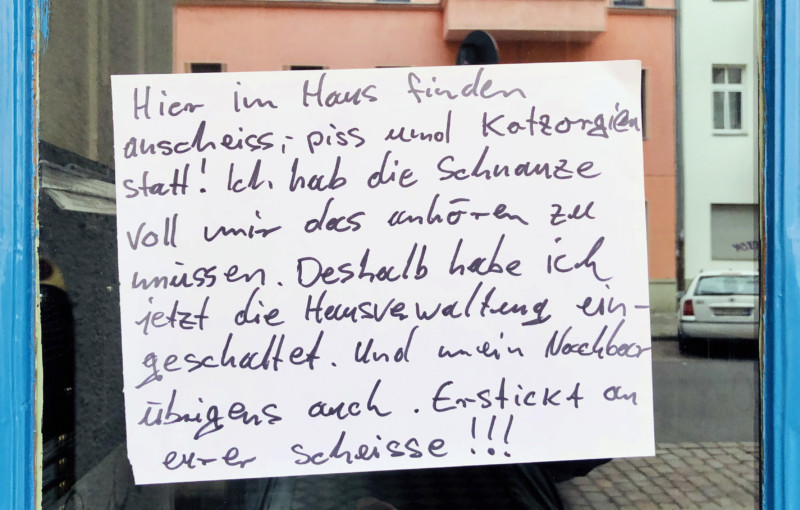 Hier im Haus finden
anscheiss-, piss und Kotzorgien
statt! Ich hab die Schnauze
voll mir das anhören zu
müssen. Deshalb habe ich
jetzt die Hausverwaltung ein-
geschaltet. Und mein Nachbar
übrigens auch. Erstickt an
eurer Scheisse!!!